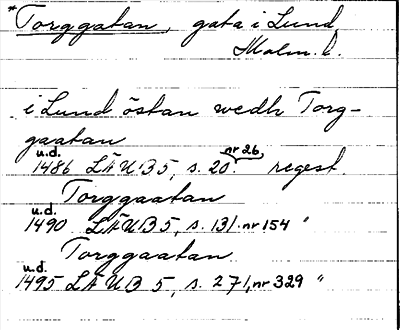 *Torggatan, gata i Lund
Malm. l.
i Lund östan wedh Torg-
gaatan
u.d. nr 26
1486 LÄUB 5, s. 20. regest.
Torggaatan
u.d.
1490 LÄUB 5, s. 131. nr 154 "
Torggaatan
u.d.
1495 LÄUB 5, s. 271, nr 329 "